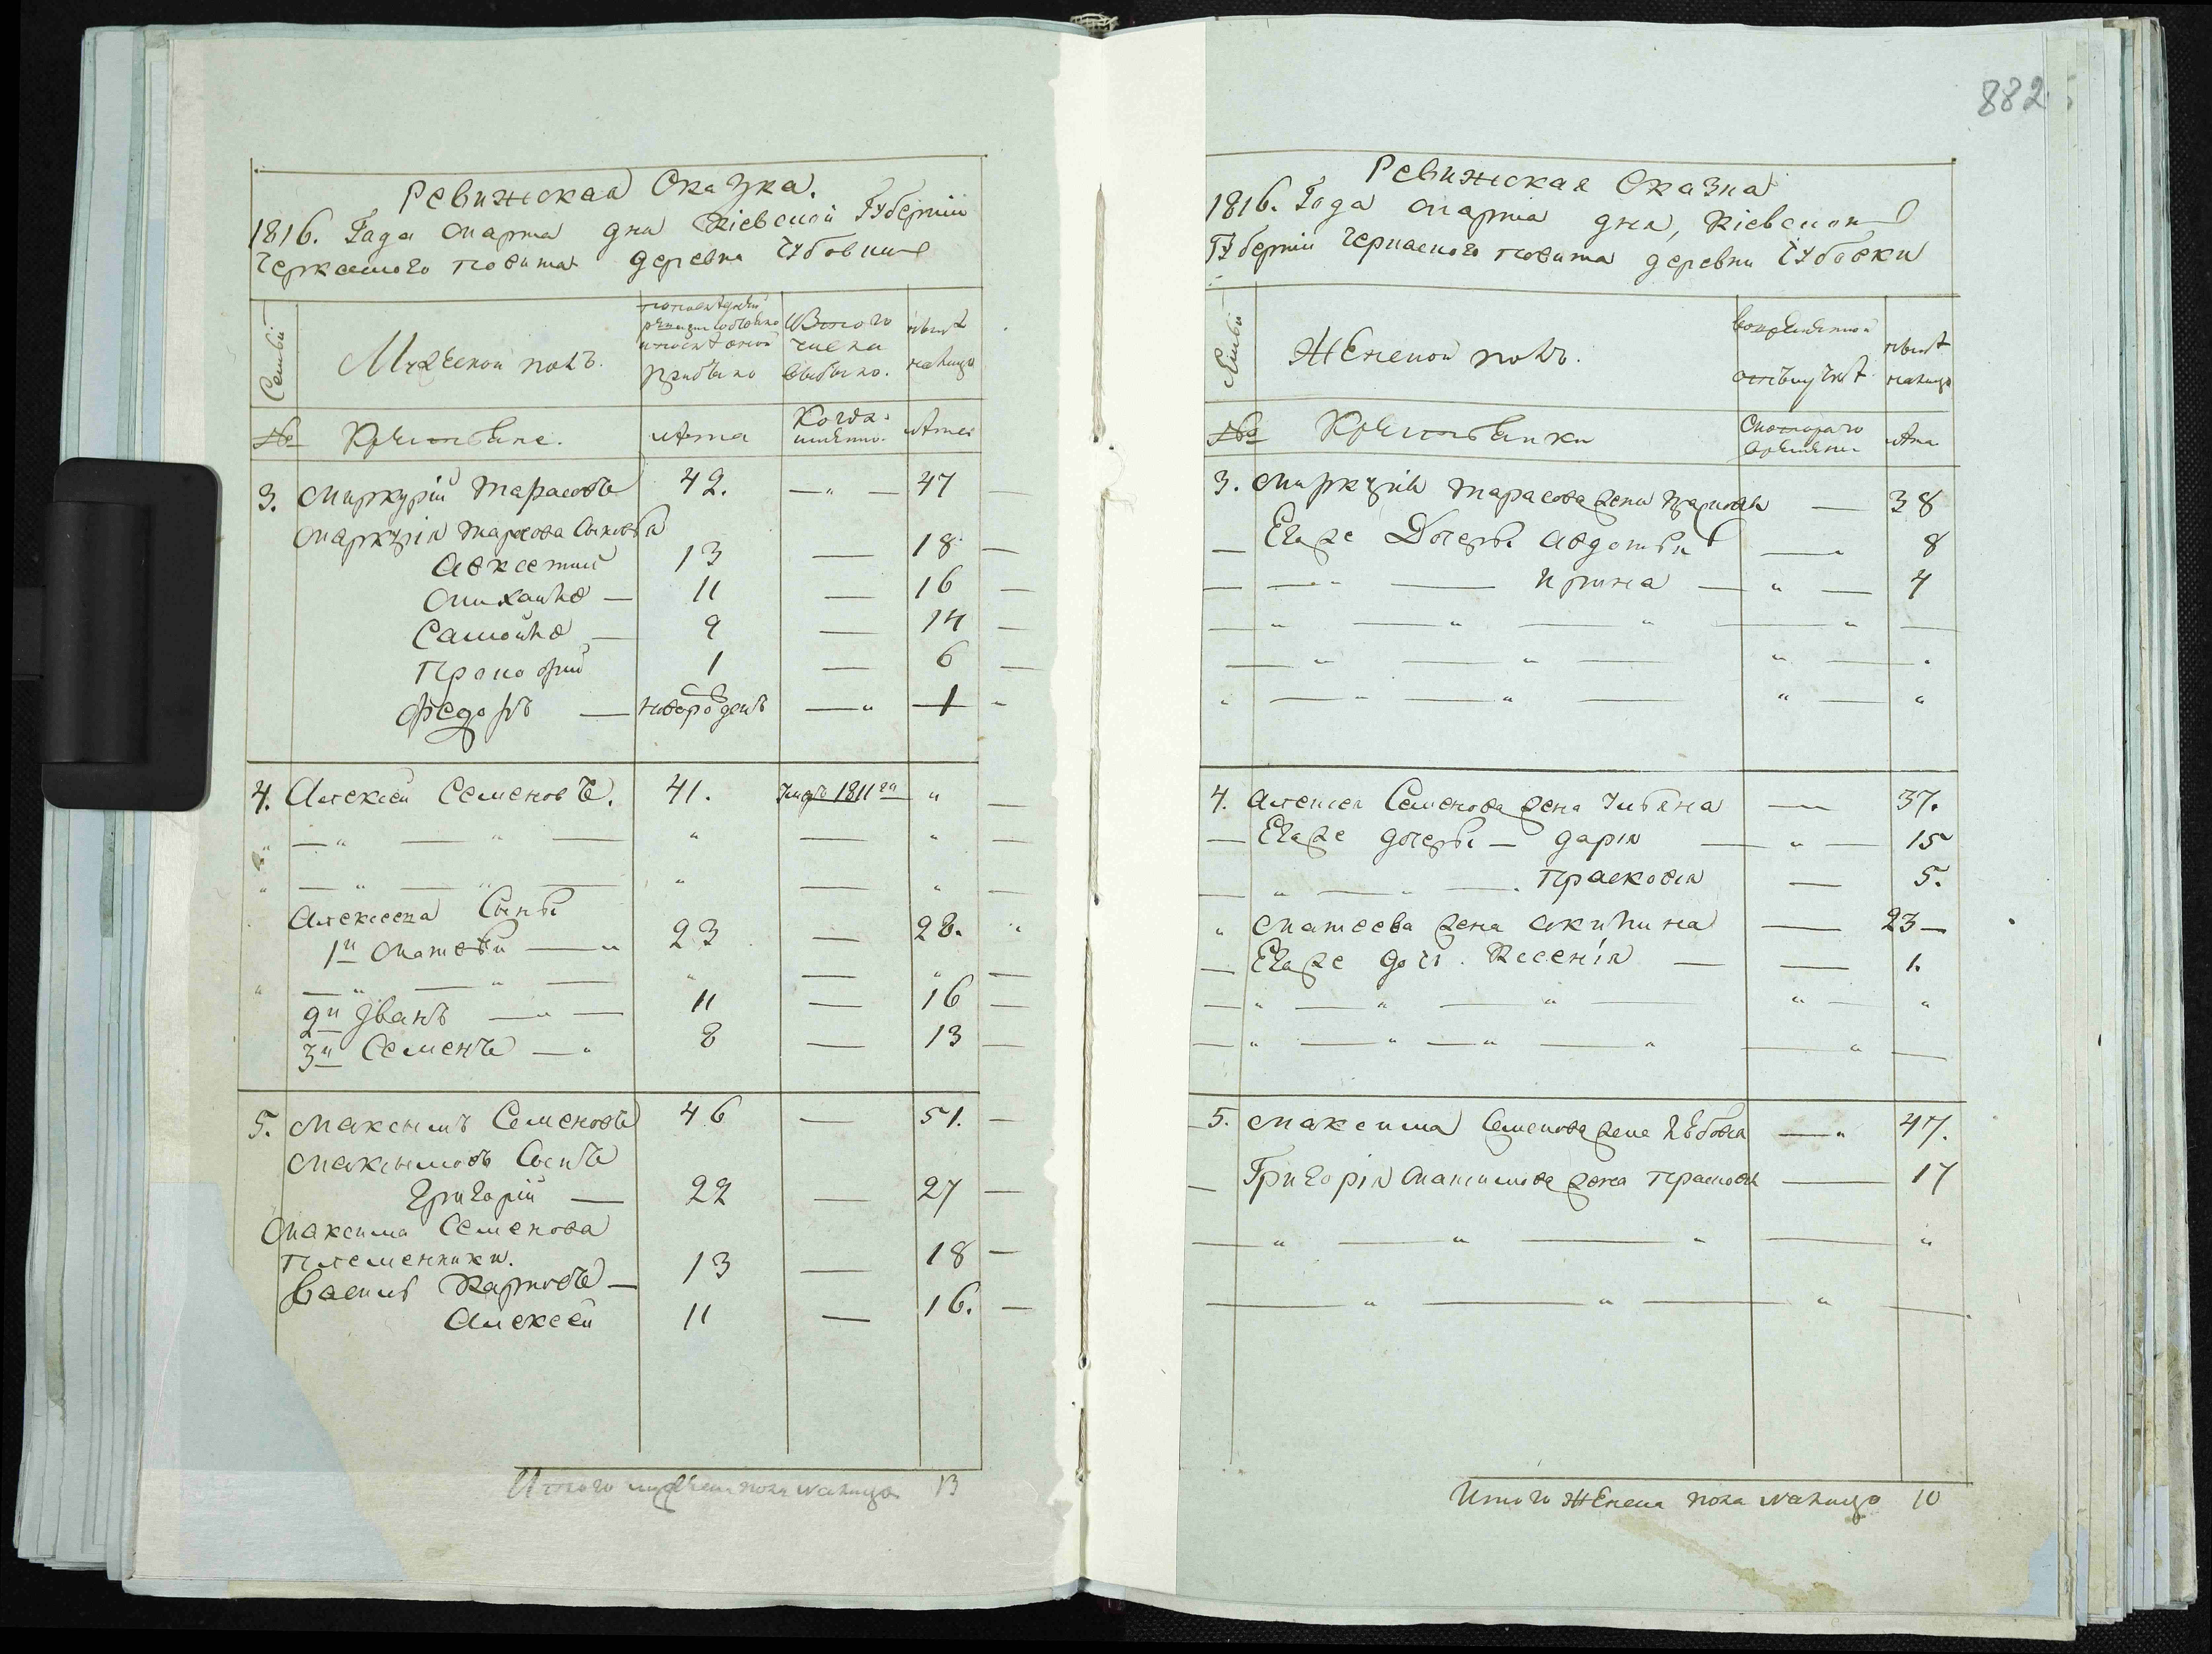 882
Ревижская Сказка.
1816. Года марта дня Кіевской Губерніи
Черкаского повита деревни Чубовки
Семьи
Мужеской полъ.
по последней ревизіи состояло и после оной прибыло
Изтого числа выбыло.
ныне налицо
№
Крестьяне.
лѣта
Когда именно.
лѣта
3. Миркурій Тарасовъ 42. — " — 47 —
Маркурія Тарасова Сыновья
Авксетий 13 — 18 —
Михайло — 11 — 16 —
Самойло — 9 — 14 —
Прокофий 1 — 6 —
Федоръ — новорожденъ — " 1 "
4. Алексей Семеновъ. 41. 1811 го " —
" — " — " — " — " —
" — " — " — " — " —
Алексеева Сыны
1й Матвѣй — " 23 — 28. "
" — " — " — " — " —
2й Иванъ — " — 11 — 16 —
3й Семенъ — " 8 — 13 —
5. Максимъ Семеновъ 46 — 51. —
Максимовъ Сынъ
Григорій — 22 — 27 —
Максима Семенова
племенники.
Василь Карповъ — 13 — 18 —
Алексей 11 — 16. —
Итого мужеска пола налицо 13
Ревижская Сказка
1816. Года марта дня, Кіевской
Губерніи Черкаского повита деревни Чубовки
Семьи
Женской полъ.
вовременной отлучкѣ
ныне налицо
№
Крестьянки
Скотораго времени
лѣта
3. Миркурія Тарасова жена — 38
— Егоже Дочеры Авдотья — " 8
— — " — Ирина — " — 4
— " — " — " — " —
— " — " — " — "
" — " — " — " — "
4. Алексея Семенова жена Ульяна — 37.
— Егоже дочеры — дарія — " — 15
— " — " — . Прасковія — 5.
" Матвеева жена Акилина — 23 —
— Егоже доч. Ксенія — — 1.
— " — " — " — " — "
— " — " — " — " — " —
5. Максима Семенова жена — " 47.
— Григорія Максимова жена Прасковія — 17
— " — " — " — "
— " — " — " —
Итого женска пола налицо 10